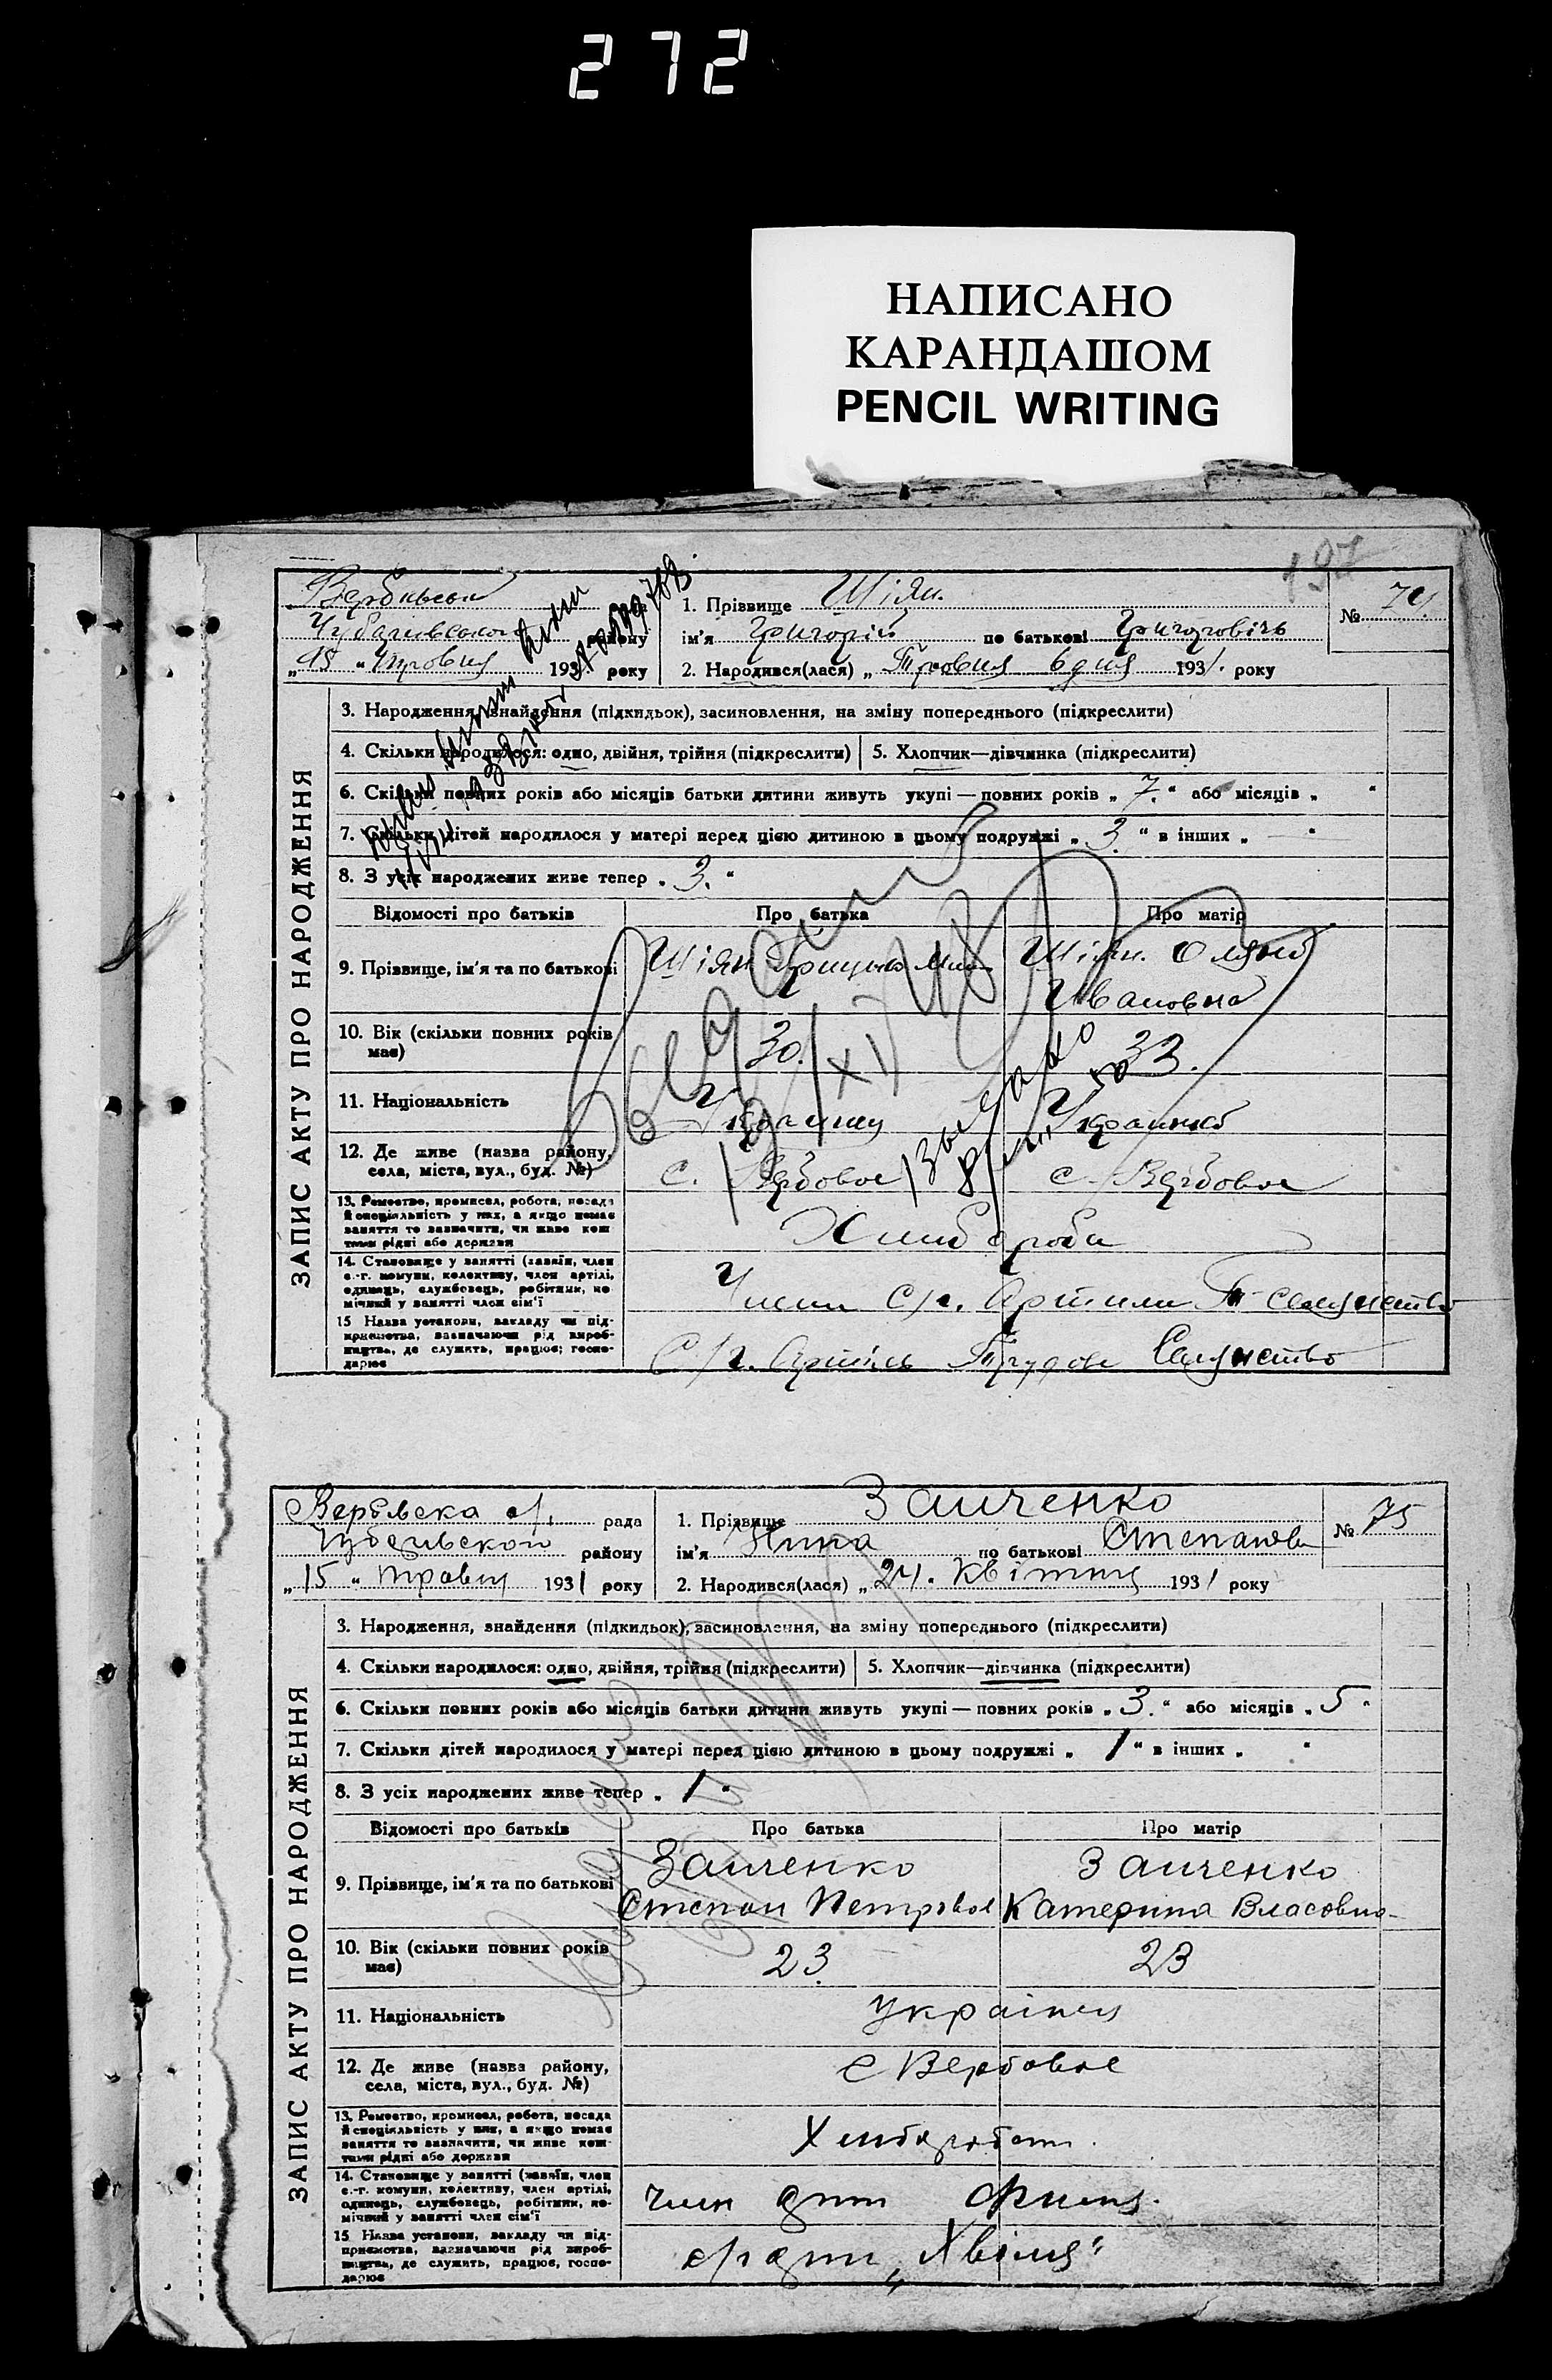 272
НАПИСАНО
КАРАНДАШОМ
PENCIL WRITING
197
ЗАПИС АКТУ ПРО НАРОДЖЕННЯ
району
„15“ Травня 1931 року
1. Прізвище Шіян.
№ 74
ім'я Григорій по батькові Григоровічь
2. Народився(лася) „Травня 6 дня 1931. року
3. Народження, знайдення (підкидьок), засиновлення, на зміну попереднього (підкреслити)
4. Скільки народилося: одно, двійня, трійня (підкреслити)
5. Хлопчик—дівчинка (підкреслити)
6. Скільки повних років або місяців батьки дитини живуть укупі — повних років „7.“ або місяців „ “
7. Скільки дітей народилося у матері перед цією дитиною в цьому подружжі „3.“ в інших „—“
8. З усіх народжених живе тепер „3.“
Відомості про батьків Про батька Про матір
9. Прізвище, ім'я та по батькові Шіян Грицько Шіян. Оляна
Ивановна
10. Вік (скільки повних років має) 30. 33.
11. Національність Украинец Украинка
12. Де живе (назва району, села, міста, вул., буд. №) с. Вербовое с. Вербовое
13. Ремество, промисел, робота, посада й спеціяльність у них, а якщо немає заняття то зазначити, чи живе коштами рідні або держави
Хлибороби
14. Становище у занятті (хазяїн, член с.-г. комуни, колективу, член артілі, одинець, службовець, робітник, помічний у занятті член сім'ї
Члени С/г. Артили Т Селянство
15 Назва установи, закладу чи підприємства, зазначаючи рід виробництва, де служить, працює, господарює
С/г. Артіль Трудове Селянство
ЗАПИС АКТУ ПРО НАРОДЖЕННЯ
Вербівска с/. рада
району
„15“ травня 1931 року
1. Прізвище Заиченко
№ 75
ім'я Нина по батькові Степанов
2. Народився(лася) „24. Квітня 1931 року
3. Народження, знайдення (підкидьок), засиновлення, на зміну попереднього (підкреслити)
4. Скільки народилося: одно, двійня, трійня (підкреслити)
5. Хлопчик—дівчинка (підкреслити)
6. Скільки повних років або місяців батьки дитини живуть укупі — повних років „3.“ або місяців „5“
7. Скільки дітей народилося у матері перед цією дитиною в цьому подружжі „1“ в інших „ “
8. З усіх народжених живе тепер „1“
Відомості про батьків Про батька Про матір
9. Прізвище, ім'я та по батькові Заиченко Заиченко
Степан Петровов Катерина Власовна
10. Вік (скільки повних років має) 23. 23
11. Національність українця
12. Де живе (назва району, села, міста, вул., буд. №) с Вербовое
13. Ремество, промисел, робота, посада й спеціяльність у них, а якщо немає заняття то зазначити, чи живе коштами рідні або держави
Хлибороби
14. Становище у занятті (хазяїн, член с.-г. комуни, колективу, член артілі, одинець, службовець, робітник, помічний у занятті член сім'ї
член
15 Назва установи, закладу чи підприємства, зазначаючи рід виробництва, де служить, працює, господарює
„Хвіля“